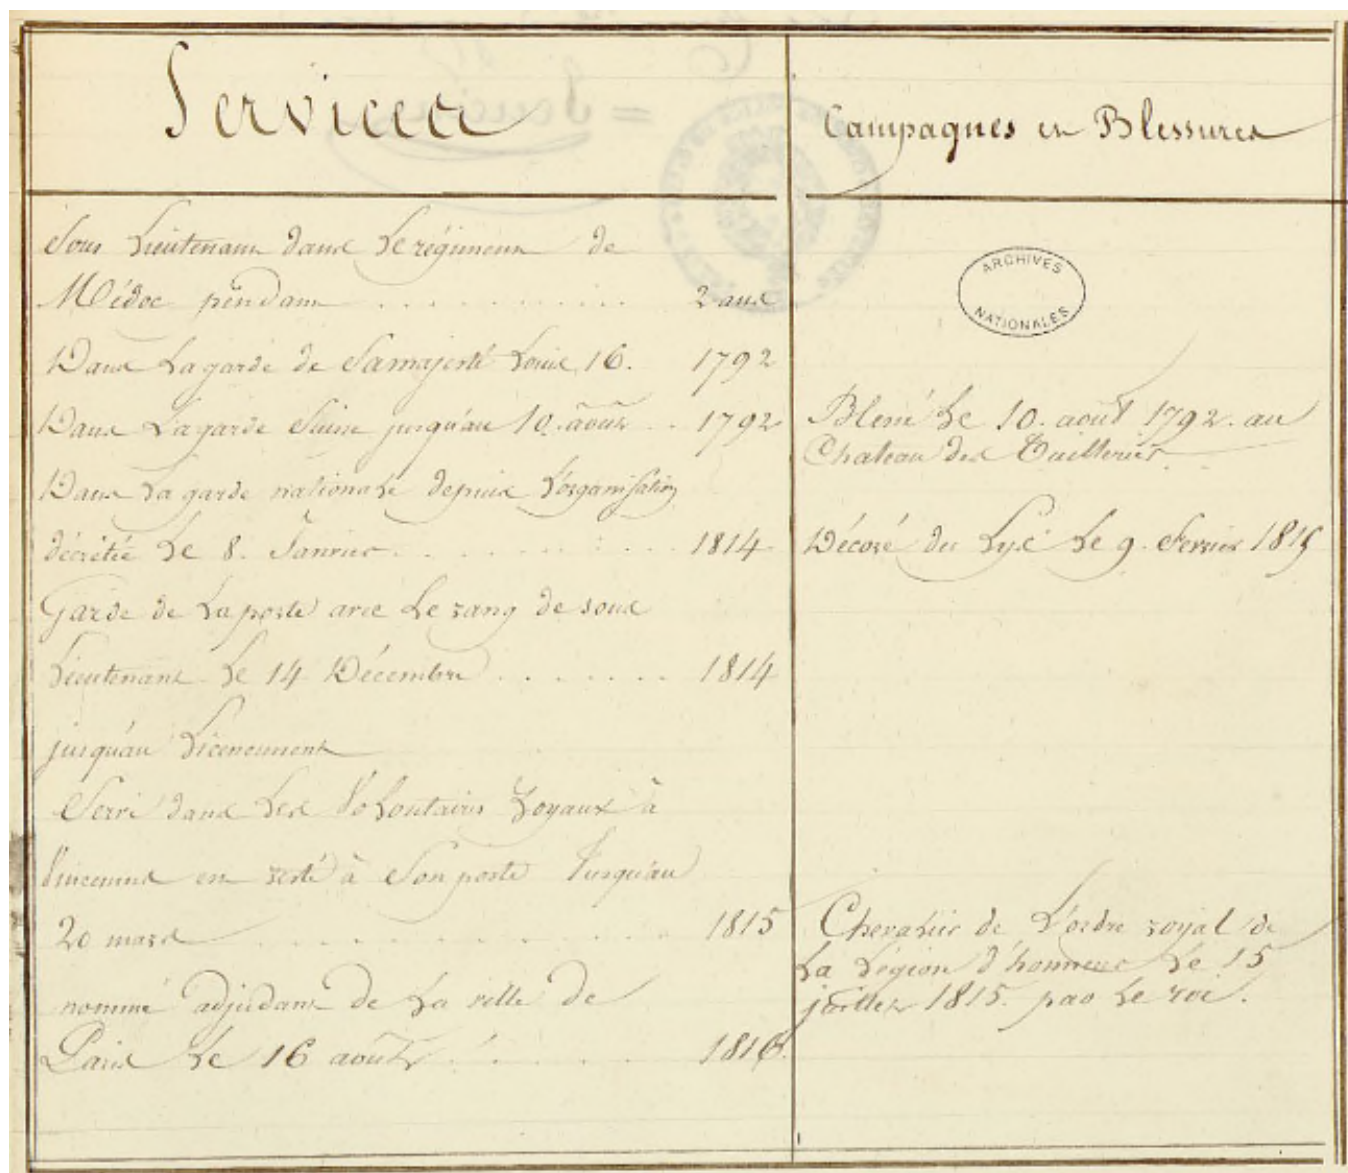 Services
Campagnes et Blessures
Sous Lieutenant dans Le régiment de
Médoc pendant . . . . . . . . . . . 2 ans
Dans La garde de Sa majesté Louis 16. 1792
Dans La garde Suisse jusqu'au 10. août . . 1792
Dans La garde nationale depuis L'organisation
décrétée Le 8. Janvier . . . . . . . . . . 1814
Garde de La porte avec Le rang de sous
Lieutenant Le 14 Décembre . . . . . . . 1814
jusqu'au Licenciement
Servi dans Les Volontaires Royaux à
Vincennes et resté à Son poste Jusqu'au
20 mars . . . . . . . . . . . . . . 1815
nommé adjudant de La ville de
Paris Le 16 août . . . . . 1816.
ARCHIVES
NATIONALES
Blessé Le 10. août 1792. au
Chateau des Tuilleries.
Décoré du Lys Le 9. Fevrier 1815
Chevalier de L'ordre royal de
La Légion d'honneur Le 15
juillet 1815. par Le roi.